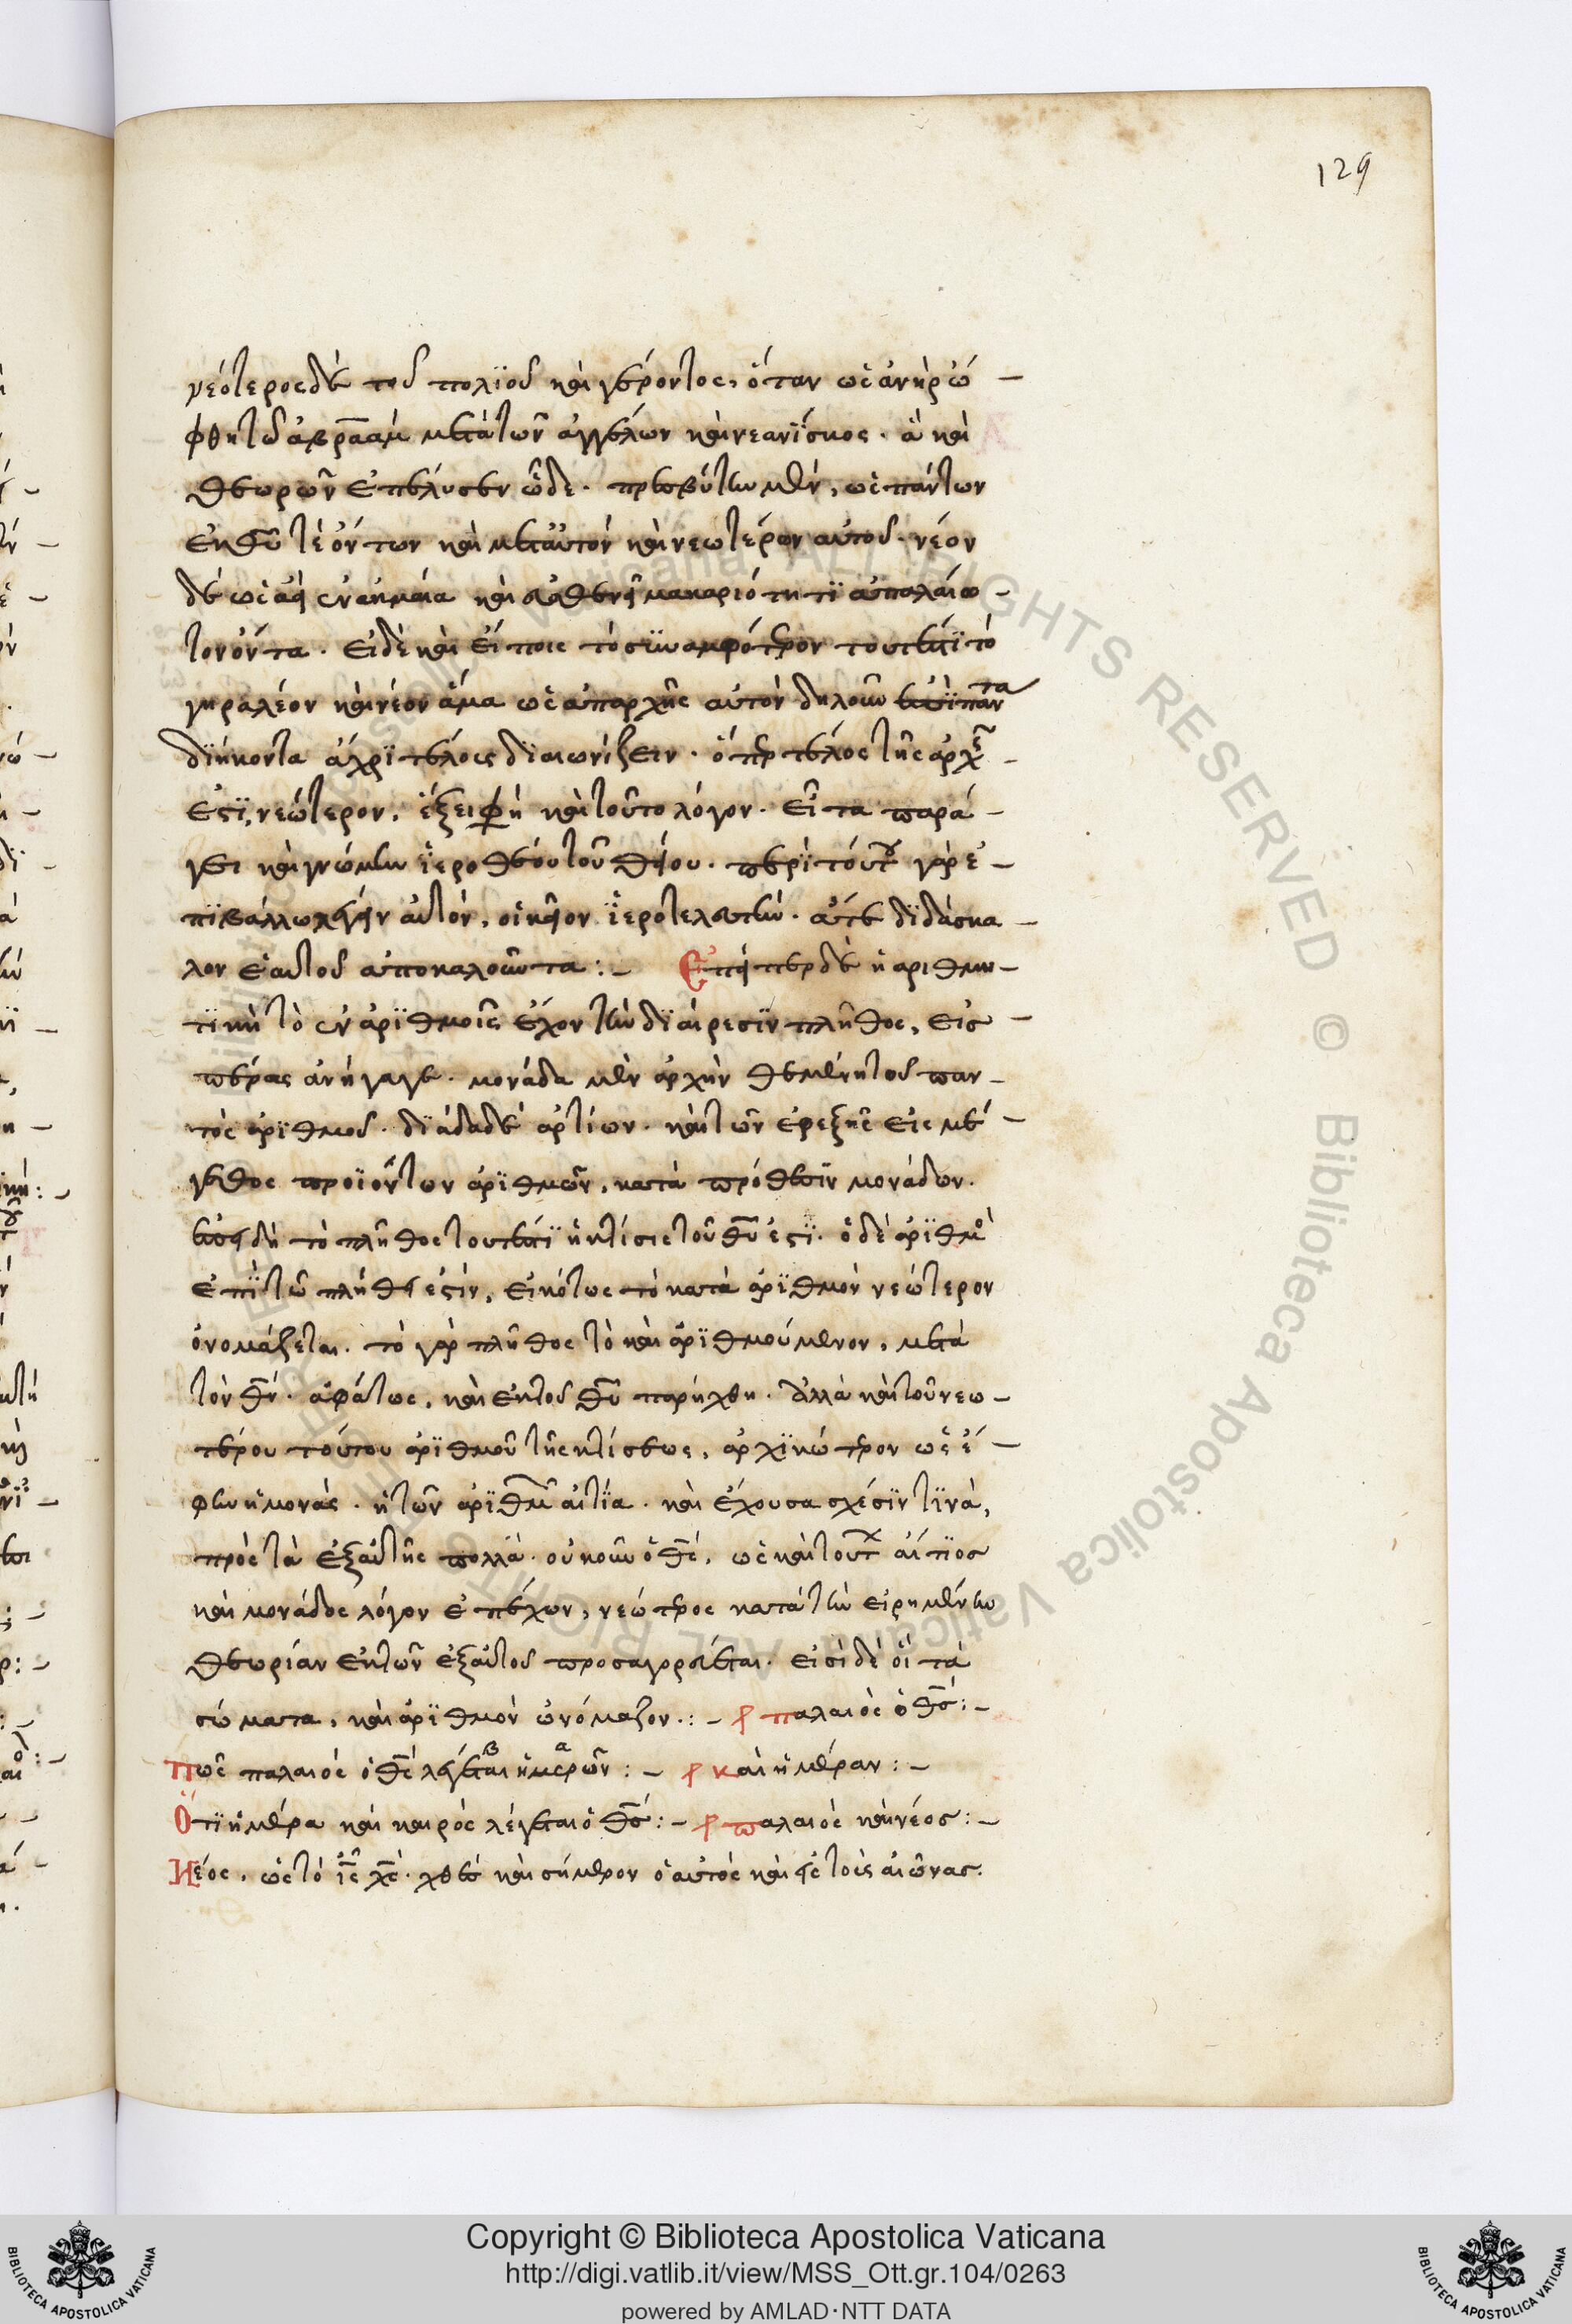 129
νεότερος δὲ τοῦ πολιοῦ καὶ γέροντος, ὅταν ὡς ἀνὴρ ὤ –
φθη τῶ ἀβραὰμ μετὰ τῶν ἀγγέλων καὶ νεανΐσκος . ἃ καὶ
θεωρῶν ἐπέλυσεν ὧδε . πρεσβύτην μὲν, ὡς πάντων
ἐκ θῦ τὲ ὄντων καὶ μετ αὐτὸν καὶ νεωτέρων αὐτοῦ . νέον
δὲ ὡς ἀεὶ ἐν ἀκμαία καὶ μακαριότητϊ
τον ὄντα . εἰ δὲ καὶ εἴποις τὸ συναμφότερον τουτέστϊ τὸ
γηραλέον καὶ νέον ἅμα ὡς ἀπαρχῆς αὐτὸν δηλοῦν
διήκοντα ἄχρϊ τέλους δϊαιωνίζειν . ὅπερ τέλος τῆς ἀρχῆς –
ἐστϊ, νεώτερον, ἕξει φη καὶ τοῦτο λόγον . εἶτα παρά –
γει καὶ γνώμην ἱεροθέου τοῦ θείου . περὶ τούτου γὰρ ἐ –
πϊβάλλω λέγειν αὐτὸν, οἰκεῖον ἱεροτελεστὴν . ἅτε δϊδάσκα –
λον ἑαυτοῦ ἀποκαλοῦντα : – Ἐπείπερ δὲ ἡ ἀριθμη –
τϊκὴ τὸ ἐν ἀρϊθμοῖς ἔχον τὴν δϊαίρεσϊν πλῆθος, εἰσ –
πέρας ἀνήγαγε . μονάδα μὲν ἀρχὴν θεμένη τοῦ παν –
τὸς ἀρϊθμοῦ . δϊάδα δὲ ἀρτίων . καὶ τῶν ἐφεξῆς εἰς μέ –
γεθος προϊόντων ἀρϊθμῶν, κατὰ πρόθεσϊν μονάδων .
ἐπεὶ δὴ τὸ πλῆθος τουτέστϊ ἡ κτίσις τοῦ θῦ ἐστϊ . ὁ δὲ ἀρϊθμὸ
ἐπῒ τῶ πλήθει ἐστὶν, εἰκότως τὸ κατὰ ἀρϊθμὸν νεώτερον
ὀνομάζεται . τὸ γὰρ πλῆθος τὸ καὶ ἀρϊθμούμενον, μετὰ
τὸν θν . ἀφάτως, καὶ ἐκ τοῦ θῦ παρήχθη . ἀλλὰ καὶ τοῦ νεω –
τέρου τούτου ἀρϊθμοῦ τῆς κτίσεως, ἀρχϊκώτερον ὡς ἔ –
φην ἡ μονάς . ἡ τῶν ἀρϊθμῶν αἰτία . καὶ ἔχουσα σχέσϊν τϊνὰ,
πρὸς τὰ ἐξ αὐτῆς πολλά . οὐκοῦν ὁ θς, ὡς καὶ τούτων αἴτϊος
καὶ μονάδος λόγον ἐπέχων, νεώτερος κατὰ τὴν εἰρημένην
θεωρίαν ἐκ τῶν ἐξ αὐτοῦ προσαγορεύεται . εἰσὶ δὲ οἳ τὰ
σώματα, καὶ ἀρϊθμὸν ὠνόμαζον . : – παλαιὸς ὁ θς : –
Πῶς παλαιὸς ὁ θς λέγεται ἡμερῶν : – καὶ ἡμέραν : –
Ὅτϊ ἡμέρα καὶ καιρὸς λέγεται ὁ θς : – παλαιὸς καὶ νέος : –
Νέος . ὡς τὸ ις χς . χθὲς καὶ σήμερον ὁ αὐτὸς καὶ εἰς τοὺς αἰῶνας .
Copyright © Biblioteca Apostolica Vaticana
http://digi.vatlib.it/view/MSS_Ott.gr.104/0263
powered by AMLAD·NTT DATA
BIBLIOTECA APOSTOLICA VATICANA
BIBLIOTECA APOSTOLICA VATICANA